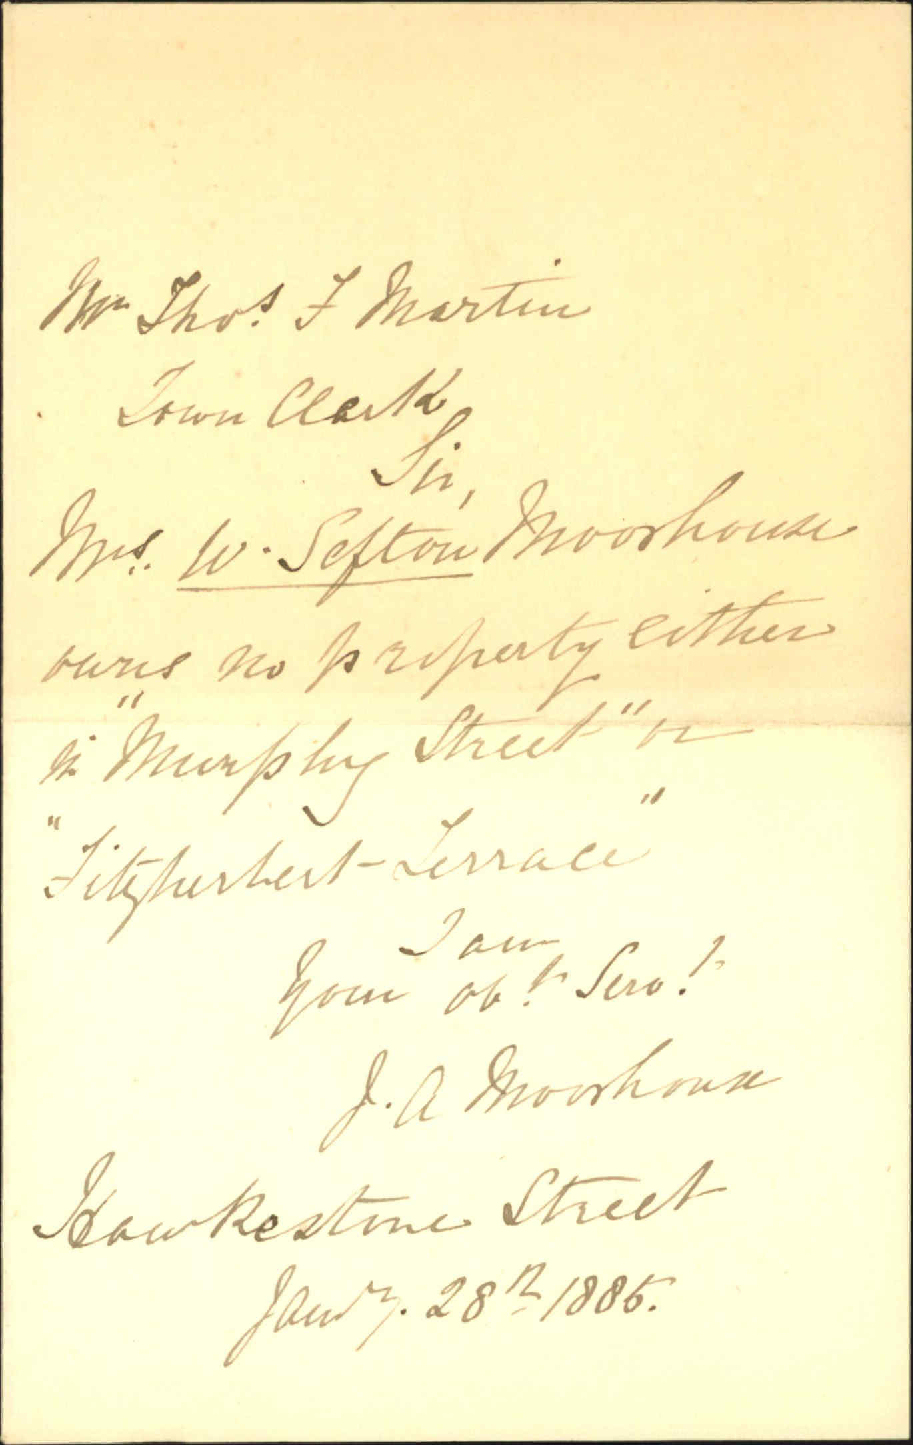 Mr Thos. F Martin
Town Clerk
Sir,
Mrs. W. Sefton Moorhouse
owns no property either
in "Murphy Street" or
"Fitzherbert Terrace"
I am
Your obt. Servt.
J. A Moorhouse
Hawkestone Street
Jany. 28th 1885.